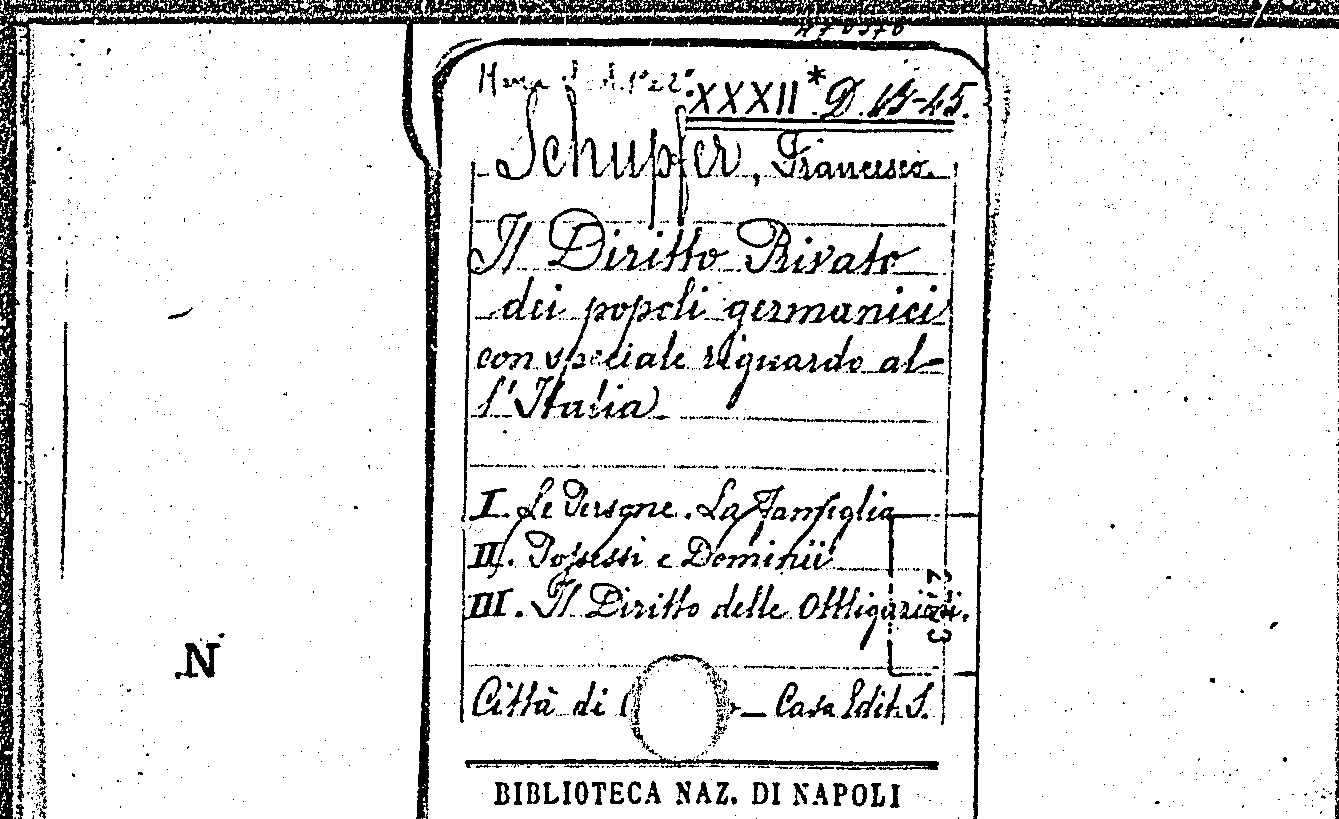 XXXII* D. 15-45.
Schupfer, Francesco.
Il Diritto Privato
dei popoli germanici
con speciale riguardo al-
l'Italia
I. Le Persone. La Famiglia
II. Possessi e Dominii
III. Il Diritto delle Obbligazioni.
Città di
Casa Edit. S.
N
BIBLIOTECA NAZ. DI NAPOLI